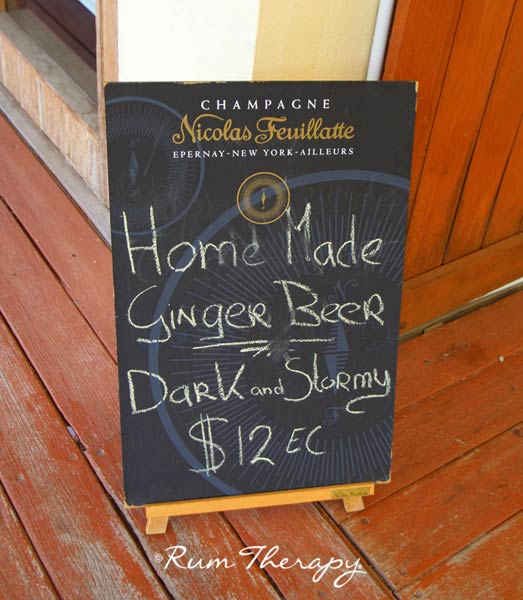 CHAMPAGNE
Nicolas Feuillatte
EPERNAY-NEW YORK-AILLEURS
Home Made
GINGER BEER
DARK and Stormy
$12 EC
© Rum Therapy